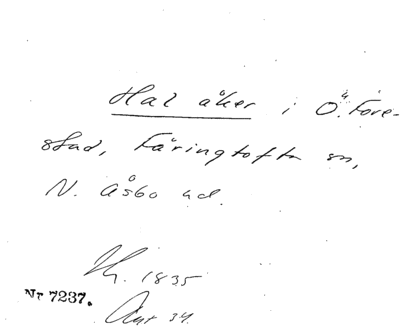 Hal åker i Ö. Före-
stad, Färingtofta sn,
N. Åsbo hd.
1835
Nr 7237.